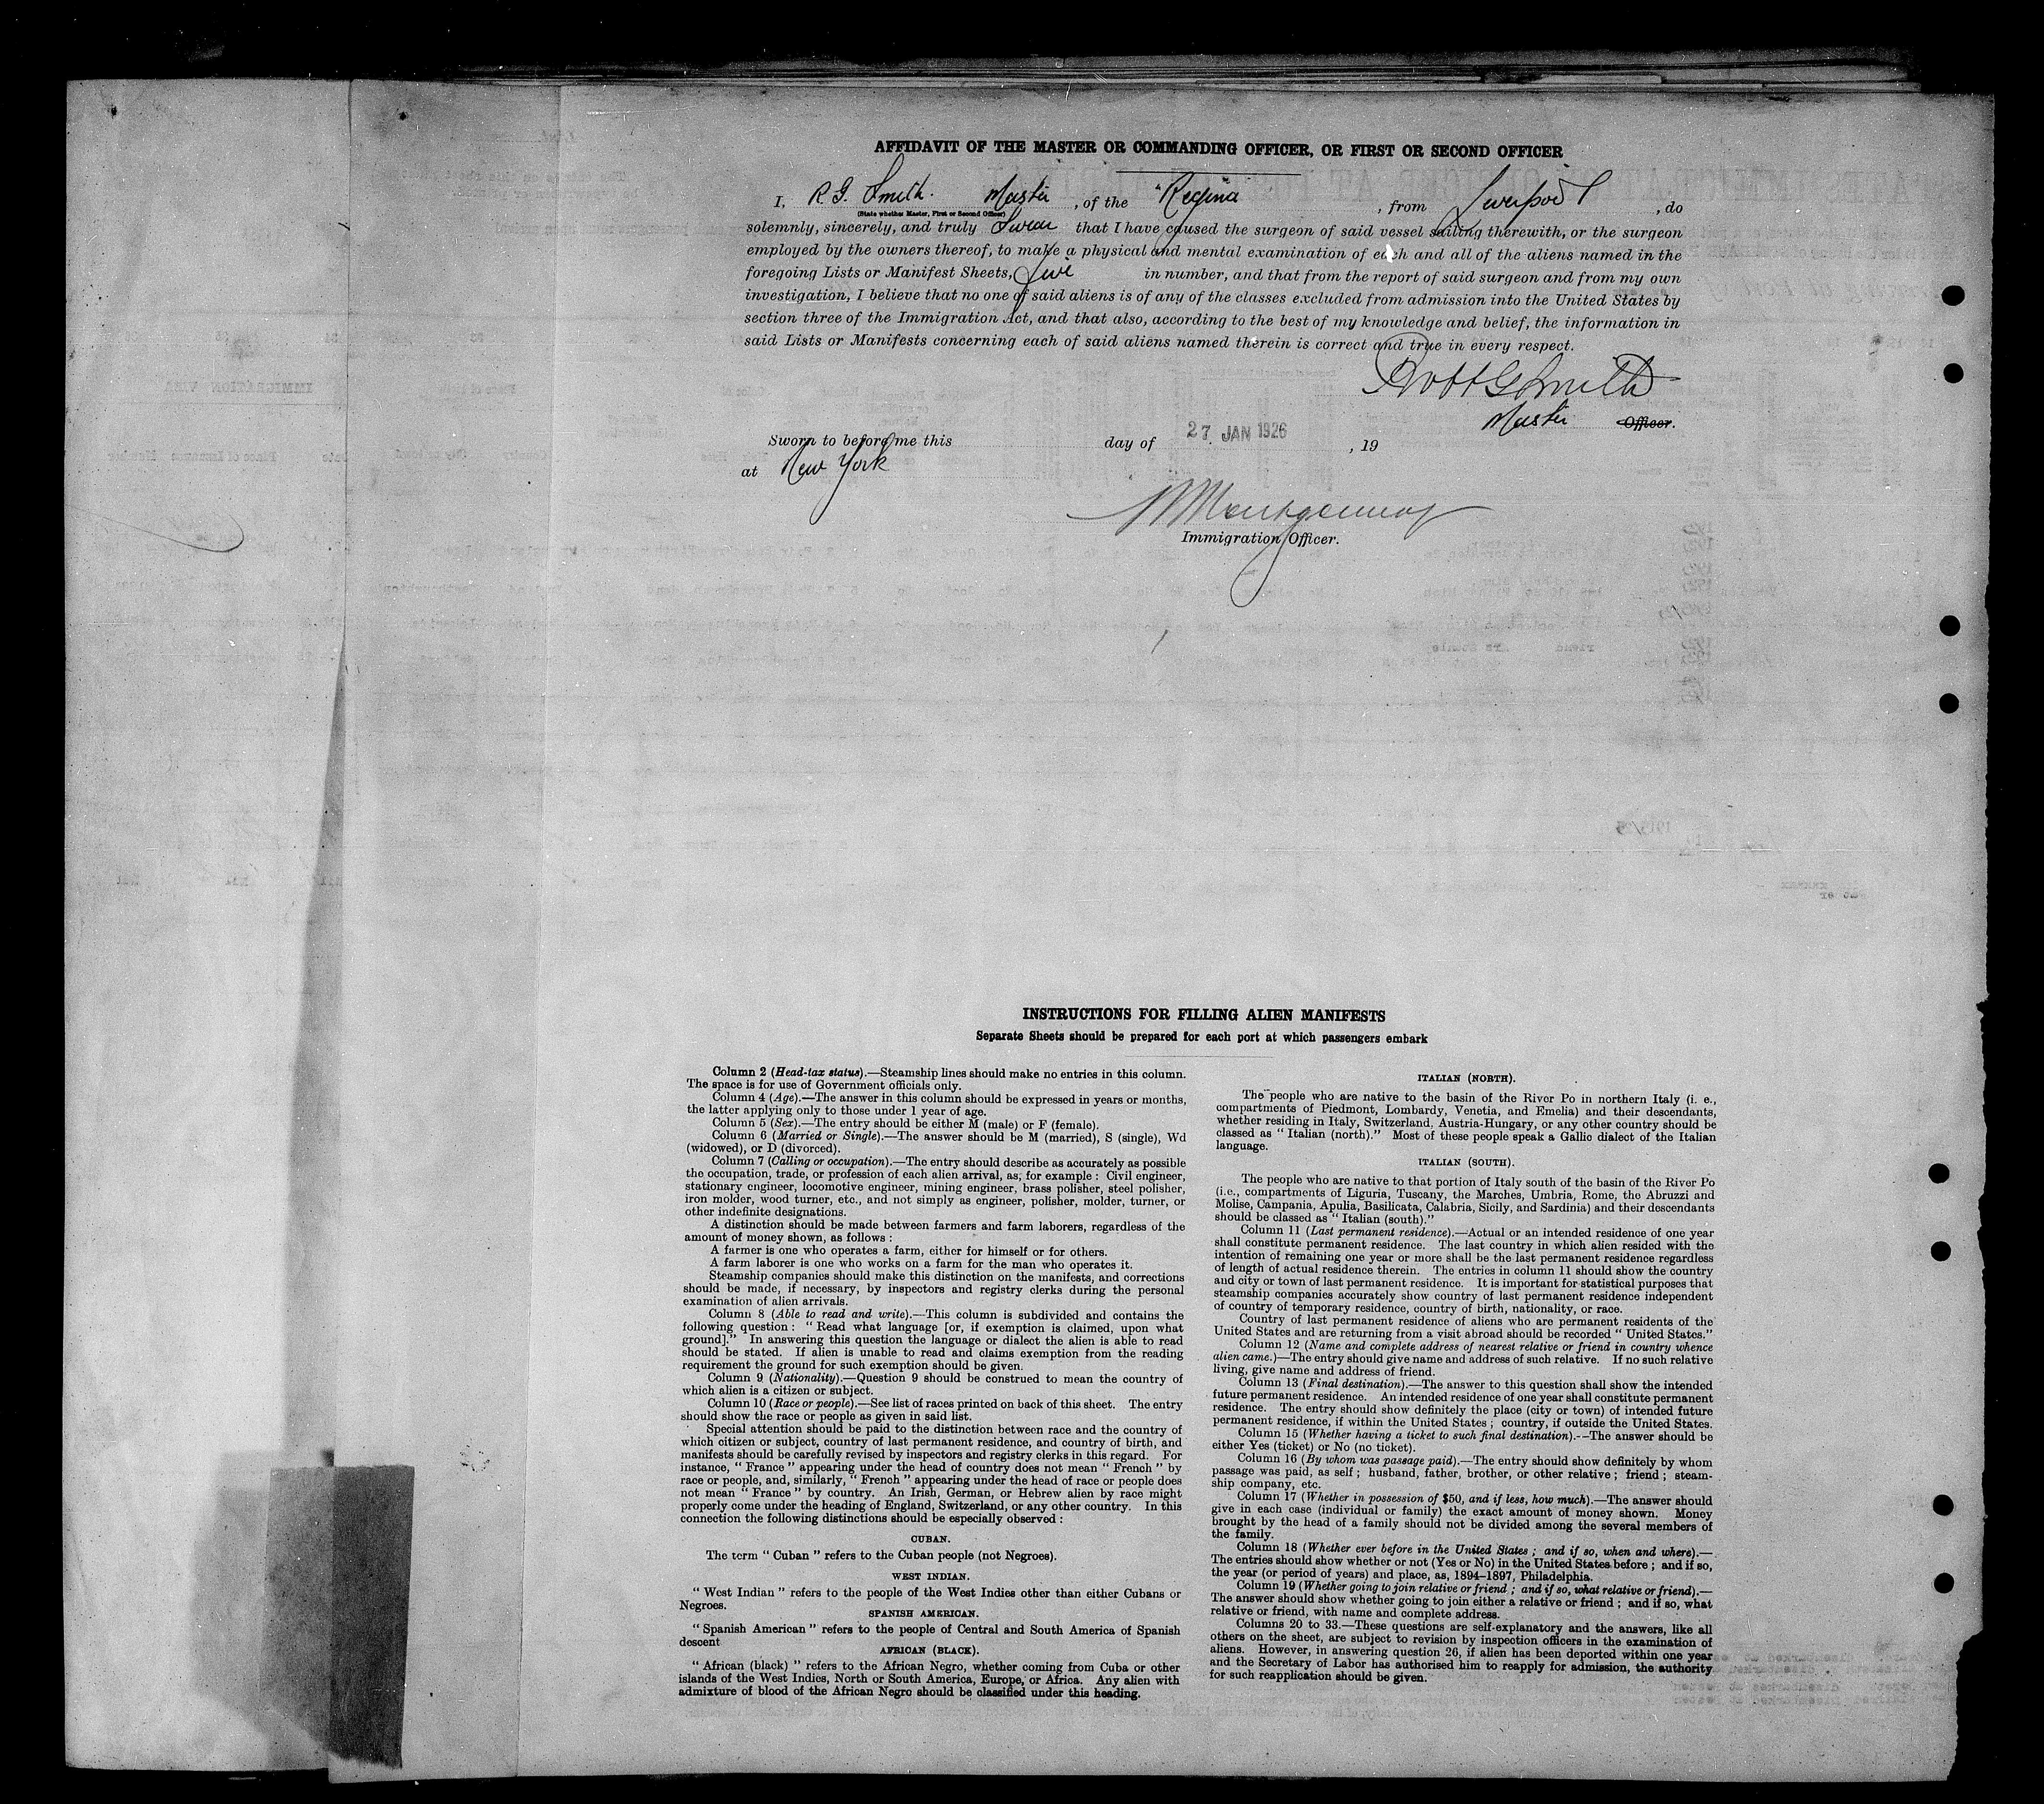 AFFIDAVIT OF THE MASTER OR COMMANDING OFFICER, OR FIRST OR SECOND OFFICER
I, R G. Smith. Master , of the "Regina , from Liverpool , do
(State whether Master, First or Second Officer)
solemnly, sincerely, and truly Swear that I have caused the surgeon of said vessel sailing therewith, or the surgeon
employed by the owners thereof, to make a physical and mental examination of each and all of the aliens named in the
foregoing Lists or Manifest Sheets, five in number, and that from the report of said surgeon and from my own
investigation, I believe that no one of said aliens is of any of the classes excluded from admission into the United States by
section three of the Immigration Act, and that also, according to the best of my knowledge and belief, the information in
said Lists or Manifests concerning each of said aliens named therein is correct and true in every respect.
Robt G Smith
Master Officer.
Sworn to before me this day of 27 JAN 1926 , 19
at New York
Montgomery
Immigration Officer.
INSTRUCTIONS FOR FILLING ALIEN MANIFESTS
Separate Sheets should be prepared for each port at which passengers embark
Column 2 (Head-tax status).—Steamship lines should make no entries in this column.
The space is for use of Government officials only.
Column 4 (Age).—The answer in this column should be expressed in years or months,
the latter applying only to those under 1 year of age.
Column 5 (Sex).—The entry should be either M (male) or F (female).
Column 6 (Married or Single).—The answer should be M (married), S (single), Wd
(widowed), or D (divorced).
Column 7 (Calling or occupation).—The entry should describe as accurately as possible
the occupation, trade, or profession of each alien arrival, as, for example : Civil engineer,
stationary engineer, locomotive engineer, mining engineer, brass polisher, steel polisher,
iron molder, wood turner, etc., and not simply as engineer, polisher, molder, turner, or
other indefinite designations.
A distinction should be made between farmers and farm laborers, regardless of the
amount of money shown, as follows :
A farmer is one who operates a farm, either for himself or for others.
A farm laborer is one who works on a farm for the man who operates it.
Steamship companies should make this distinction on the manifests, and corrections
should be made, if necessary, by inspectors and registry clerks during the personal
examination of alien arrivals.
Column 8 (Able to read and write).—This column is subdivided and contains the
following question : " Read what language [or, if exemption is claimed, upon what
ground]." In answering this question the language or dialect the alien is able to read
should be stated. If alien is unable to read and claims exemption from the reading
requirement the ground for such exemption should be given.
Column 9 (Nationality).—Question 9 should be construed to mean the country of
which alien is a citizen or subject.
Column 10 (Race or people).—See list of races printed on back of this sheet. The entry
should show the race or people as given in said list.
Special attention should be paid to the distinction between race and the country of
which citizen or subject, country of last permanent residence, and country of birth, and
manifests should be carefully revised by inspectors and registry clerks in this regard. For
instance, " France " appearing under the head of country does not mean " French " by
race or people, and, similarly, " French " appearing under the head of race or people does
not mean " France " by country. An Irish, German, or Hebrew alien by race might
properly come under the heading of England, Switzerland, or any other country. In this
connection the following distinctions should be especially observed :
CUBAN.
The term " Cuban " refers to the Cuban people (not Negroes).
WEST INDIAN.
" West Indian " refers to the people of the West Indies other than either Cubans or
Negroes.
SPANISH AMERICAN.
" Spanish American " refers to the people of Central and South America of Spanish
descent
AFRICAN (BLACK).
" African (black) " refers to the African Negro, whether coming from Cuba or other
islands of the West Indies, North or South America, Europe, or Africa. Any alien with
admixture of blood of the African Negro should be classified under this heading.
ITALIAN (NORTH).
The people who are native to the basin of the River Po in northern Italy (i. e.,
compartments of Piedmont, Lombardy, Venetia, and Emelia) and their descendants,
whether residing in Italy, Switzerland, Austria-Hungary, or any other country should be
classed as " Italian (north)." Most of these people speak a Gallic dialect of the Italian
language.
ITALIAN (SOUTH).
The people who are native to that portion of Italy south of the basin of the River Po
(i.e., compartments of Liguria, Tuscany, the Marches, Umbria, Rome, the Abruzzi and
Molise, Campania, Apulia, Basilicata, Calabria, Sicily, and Sardinia) and their descendants
should be classed as " Italian (south)."
Column 11 (Last permanent residence).—Actual or an intended residence of one year
shall constitute permanent residence. The last country in which alien resided with the
intention of remaining one year or more shall be the last permanent residence regardless
of length of actual residence therein. The entries in column 11 should show the country
and city or town of last permanent residence. It is important for statistical purposes that
steamship companies accurately show country of last permanent residence independent
of country of temporary residence, country of birth, nationality, or race.
Country of last permanent residence of aliens who are permanent residents of the
United States and are returning from a visit abroad should be recorded " United States."
Column 12 (Name and complete address of nearest relative or friend in country whence
alien came.)—The entry should give name and address of such relative. If no such relative
living, give name and address of friend.
Column 13 (Final destination).—The answer to this question shall show the intended
future permanent residence. An intended residence of one year shall constitute permanent
residence. The entry should show definitely the place (city or town) of intended future
permanent residence, if within the United States ; country, if outside the United States.
Column 15 (Whether having a ticket to such final destination).--The answer should be
either Yes (ticket) or No (no ticket).
Column 16 (By whom was passage paid).—The entry should show definitely by whom
passage was paid, as self ; husband, father, brother, or other relative ; friend ; steam-
ship company, etc.
Column 17 (Whether in possession of $50, and if less, how much).—The answer should
give in each case (individual or family) the exact amount of money shown. Money
brought by the head of a family should not be divided among the several members of
the family.
Column 18 (Whether ever before in the United States ; and if so, when and where).—
The entries should show whether or not (Yes or No) in the United States before ; and if so,
the year (or period of years) and place, as, 1894–1897, Philadelphia.
Column 19 (Whether going to join relative or friend ; and if so, what relative or friend).—
The answer should show whether going to join either a relative or friend ; and if so, what
relative or friend, with name and complete address.
Columns 20 to 33.—These questions are self-explanatory and the answers, like all
others on the sheet, are subject to revision by inspection officers in the examination of
aliens. However, in answering question 26, if alien has been deported within one year
and the Secretary of Labor has authorised him to reapply for admission, the authority
for such reapplication should be given.